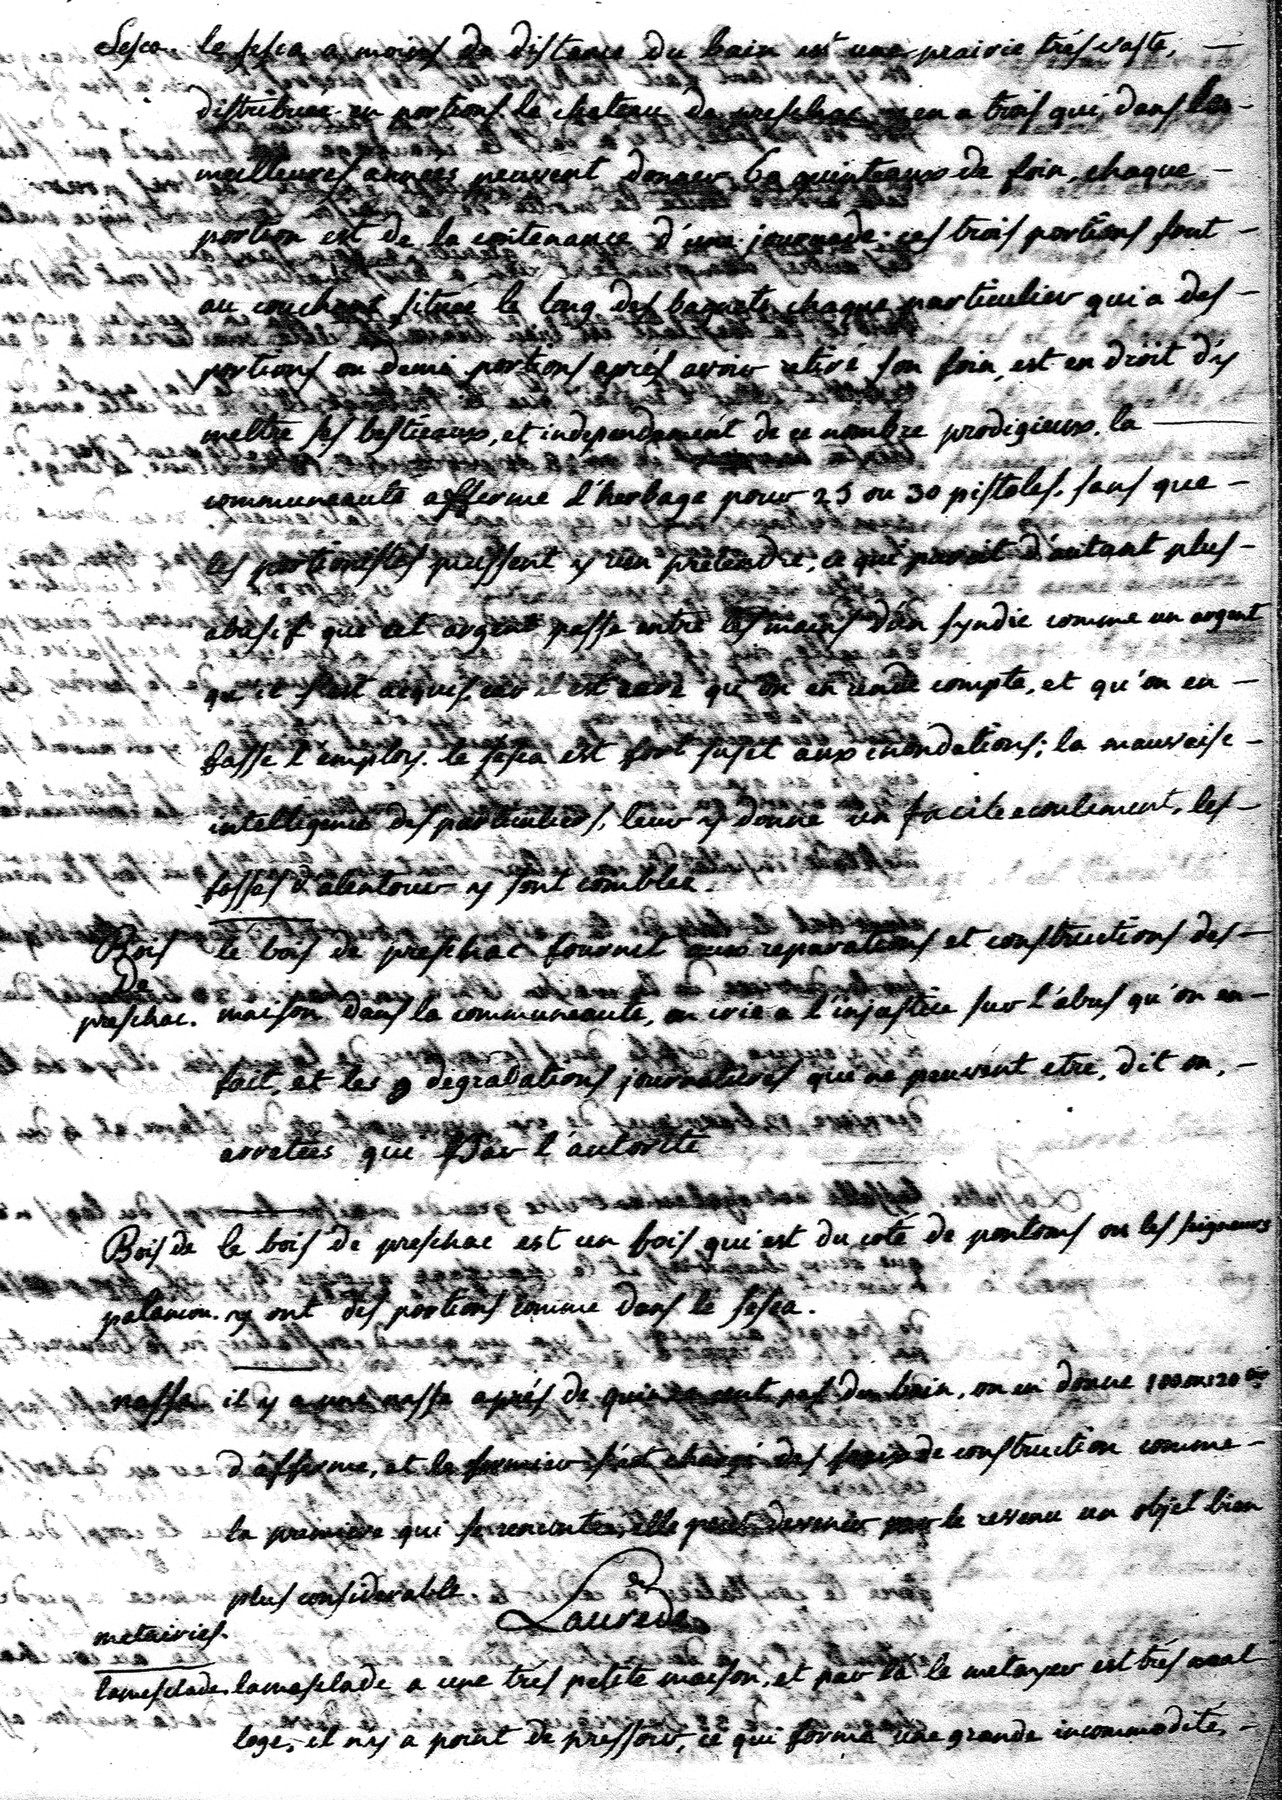 Sesca. le sesca a moins de distance du bain est une prairie trés vaste,
distribuée en portions. le chateau de preschac y en a trois qui, dans les
meilleures années peuvent donner 60 quinteaux de foin, chaque
portion est de la contenance d'une journade. ces trois portions sont
au couchant située le long des baguets. chaque particulier qui a des
portions ou demi portions aprés avoir retiré son foin, est en droit d'y
mettre ses bestieaux, et independament de ce nombre prodigieux. la
communeauté afferme l'herbage pour 25 ou 30 pistoles, sans que
les portionistes puissent y rien prétendre, ce qui paroit d'autant plus
abusif que cet argent passe entre les mains d'un syndic comme un argent
qui s'est acquis, car il est rare qu'on en rende compte, et qu'on en
fasse l'employ. le sesca est fort sujet aux inondations; la mauvaise
intelligence des particuliers, leur y donne un facile ecoulement, les
fosses d'alentour y sont comblés.
Bois le bois de preschac fournit aux reparations et constructions des
de
preschac. maison dans la communeaute, on crie a l'injustice sur l'abus qu'on en
fait, et les degradations journalieres qui ne peuvent etre, dit on,
arretées que Par l'autorité
Bois de le bois de preschac est un bois qui est du coté de pontons ou les seigneurs
palancon. y ont des portions comme dans le sesca.
nasse il y a une nasse aprés de quinze cent pas du bain, on en donne 100 ou 120 #
d'afferme, et le fermier s'est chargé des fraix de construction comme
la premiere qui se rencontre, elle peut devenir par le revenu un objet bien
plus considerable.
Laurede
metairies.
lamesplade. lamesplade a une trés petite maison, et par la le metayer est trés mal
logé, il n'y a point de pressoir, ce qui forme une grande incommodité,